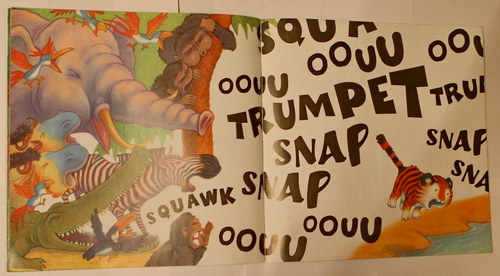 SQUA
OOUU OOU
OOUU
TRUMPET TRUM
SNAP SNAP
SQUAWK SNAP SNA
OOUU OOUU